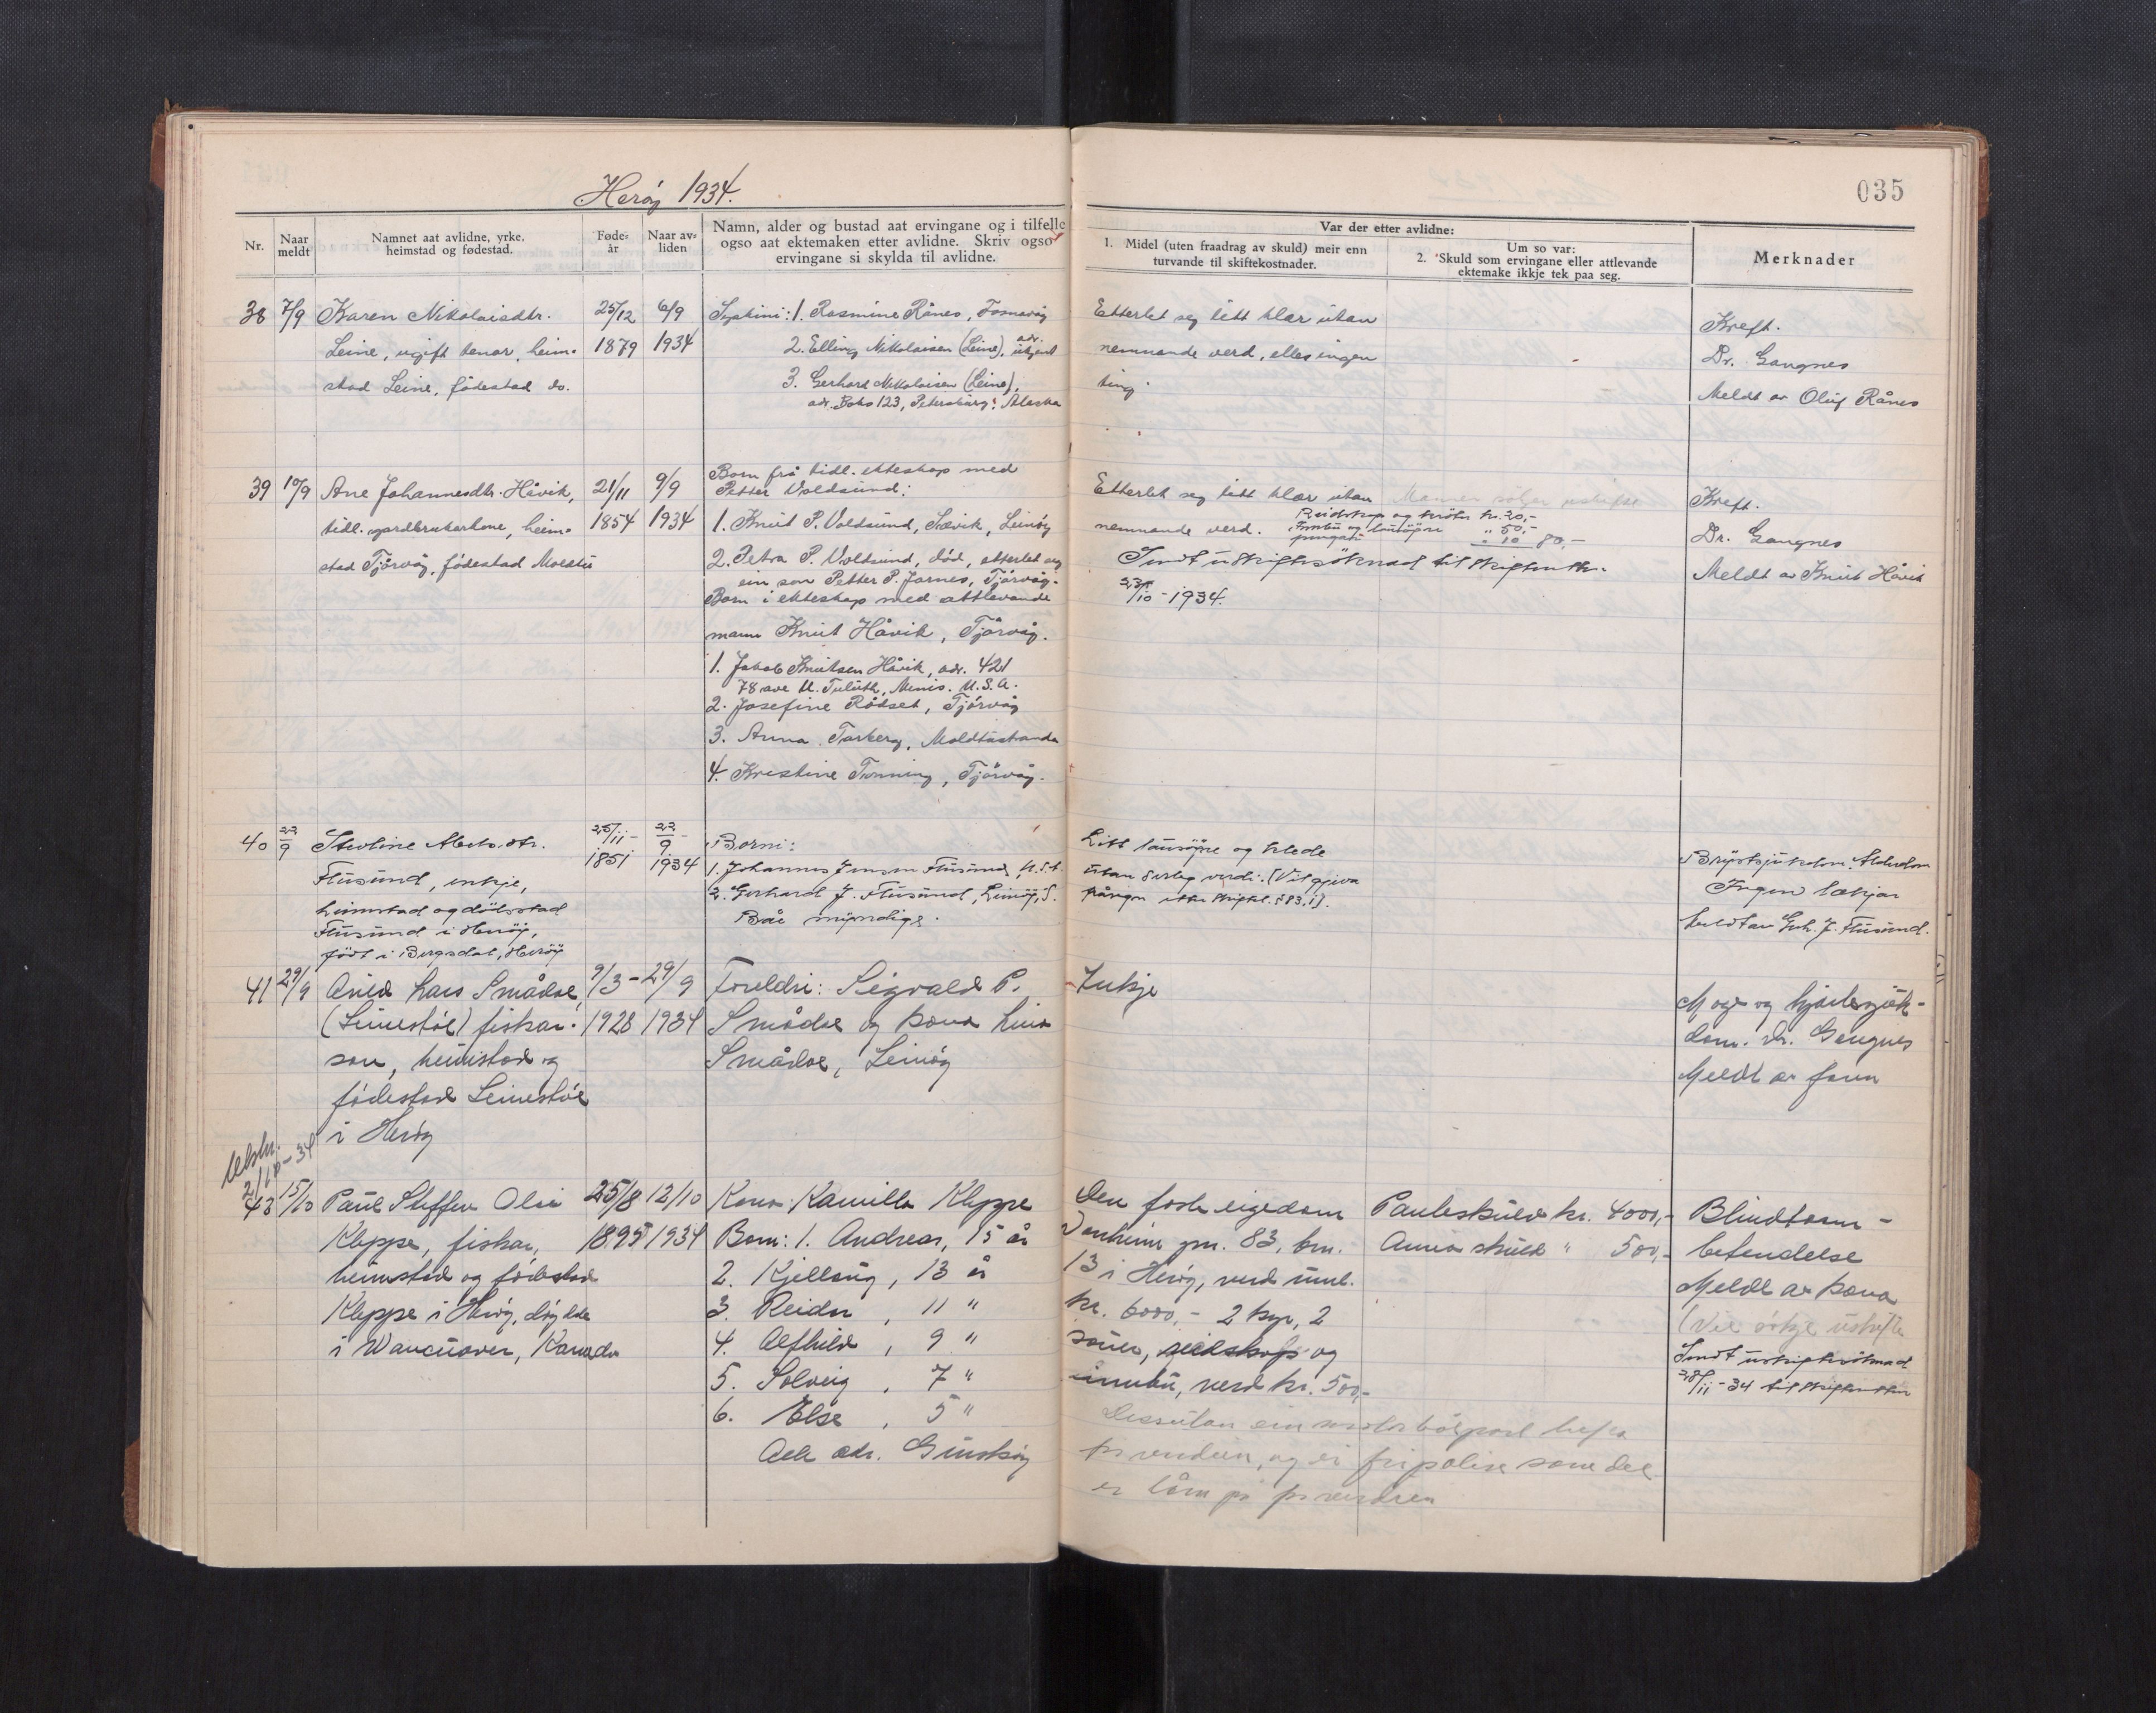 Herøy 1934.
035
Nr.
Naar meldt
Namnet aat avlidne, yrke,
heimstad og fødestad.
Føde-
år
Naar av-
liden
Namn, alder og bustad aat ervingane og i tilfelle
ogso aat ektemaken etter avlidne. Skriv ogso
ervingane si skylda til avlidne.
Var der etter avlidne:
1. Midel (uten fraadrag av skuld) meir enn
turvande til skiftekostnader.
Um so var:
2. Skuld som ervingane eller attlevande
ektemake ikkje tek paa seg.
Merknader
38 7/9 Karen Nikolaisdtr.
Leine, ugift tenar, heim-
stad Leine, fødestad do.
25/12
1879
6/9
1934
Syskini: 1. Rasmine Rånes, Fosnavåg
2. Elling Nikolaisen (Leine), adr. ukjent
3. Gerhard Nikolaisen (Leine),
adr. Boks 123, Petersburg, Alaska
Etterlet seg litt klær utan
nemnande verd, elles ingen
ting.
Kreft.
Dr. Gangnes
Meldt av Oluf Rånes
39 10/9 Ane Johannesdtr. Håvik,
tidl. gardbrukarkone, heim-
stad Tjørvåg, fødestad Moldtu
21/11
1854
9/9
1934
Born frå tidl. ekteskap med
Petter Voldsund:
1. Knut P. Voldsund, Sævik, Leinøy
2. Petra P. Voldsund, død, etterlet seg
ein son Petter P. Jarnes, Tjørvåg.
Born i ekteskap med attlevande
mann Knut Håvik, Tjørvåg.
1. Jakob Knutsen Håvik, adr. 421
78 ave W. Duluth, Minis. U.S.A.
2. Josefine Rødset, Tjørvåg
3. Anna Tarberg, Moldtustranda
4. Kristine Tonning, Tjørvåg.
Etterlet seg litt klær utan
nemnande verd.
Reidskap og krøter kr. 20,-
Innbu og lausøyre " 50,-
pengar " 10 80,-
Sendt uskiftesøknad til skifteretten
23/10-1934.
Kreft.
Dr. Gangnes
Meldt av Knut Håvik
40 22/9
Flusund, enkje,
heimstad og dødsstad
Flusund i Herøy,
født i Bergsdal, Herøy
25/11-
1851
22/9-
1934
Borni:
1. Johannes Jensen Flusund, U.S.A.
2. Gerhard J. Flusund, Leinøy, S.
Båe myndige.
Litt lausøyre og klede
utan serleg verdi. (Vil gjeva
Brystsjukdom. Alderdom
Ingen lækjar
Meldt av Gerh. J. Flusund.
41 29/9 Arvid Lars Smådal,
(Leinestøl) fiskar-
son, heimstad og
fødestad Leinestøl
i Herøy
9/3-
1928
29/9
1934
Foreldri: Sigvald P.
Smådal og kona Lina
Smådal, Leinøy
Inkje
Mage og hjartesjuk-
dom. Dr. Gangnes
Meldt av faren
Utskr.
2/11-34
43 15/10 Paul Steffen Olai
Kleppe, fiskar,
heimstad og fødestad
Kleppe i Herøy, døydde
i Wancuover, Kanada
25/8
1895
12/10
1934
Kona Kamilla Kleppe
Born: 1. Andreas, 15 år
2. Kjellaug, 13 år
3. Reidun, 11 "
4. Alfhild, 9 "
5. Solveig, 7 "
6. Else, 5 "
Alle adr. Gurskøy
Den faste eigedom
Vanheim gn. 83, bn.
13 i Herøy, verd uml.
kr. 6000,- 2 kyr, 2
sauer, reidskap og
innbu, verd kr. 500,-
Dessutan ein motorbåtpart hefta
og ei fripolise som det
er lån på
Panteskuld kr. 4000,-
Anna skuld " 500,-
Blindtarm-
betendelse
Meldt av kona
(Vil søkje uskifte
Sendt uskiftesøknad
28/11-34 til skifteretten